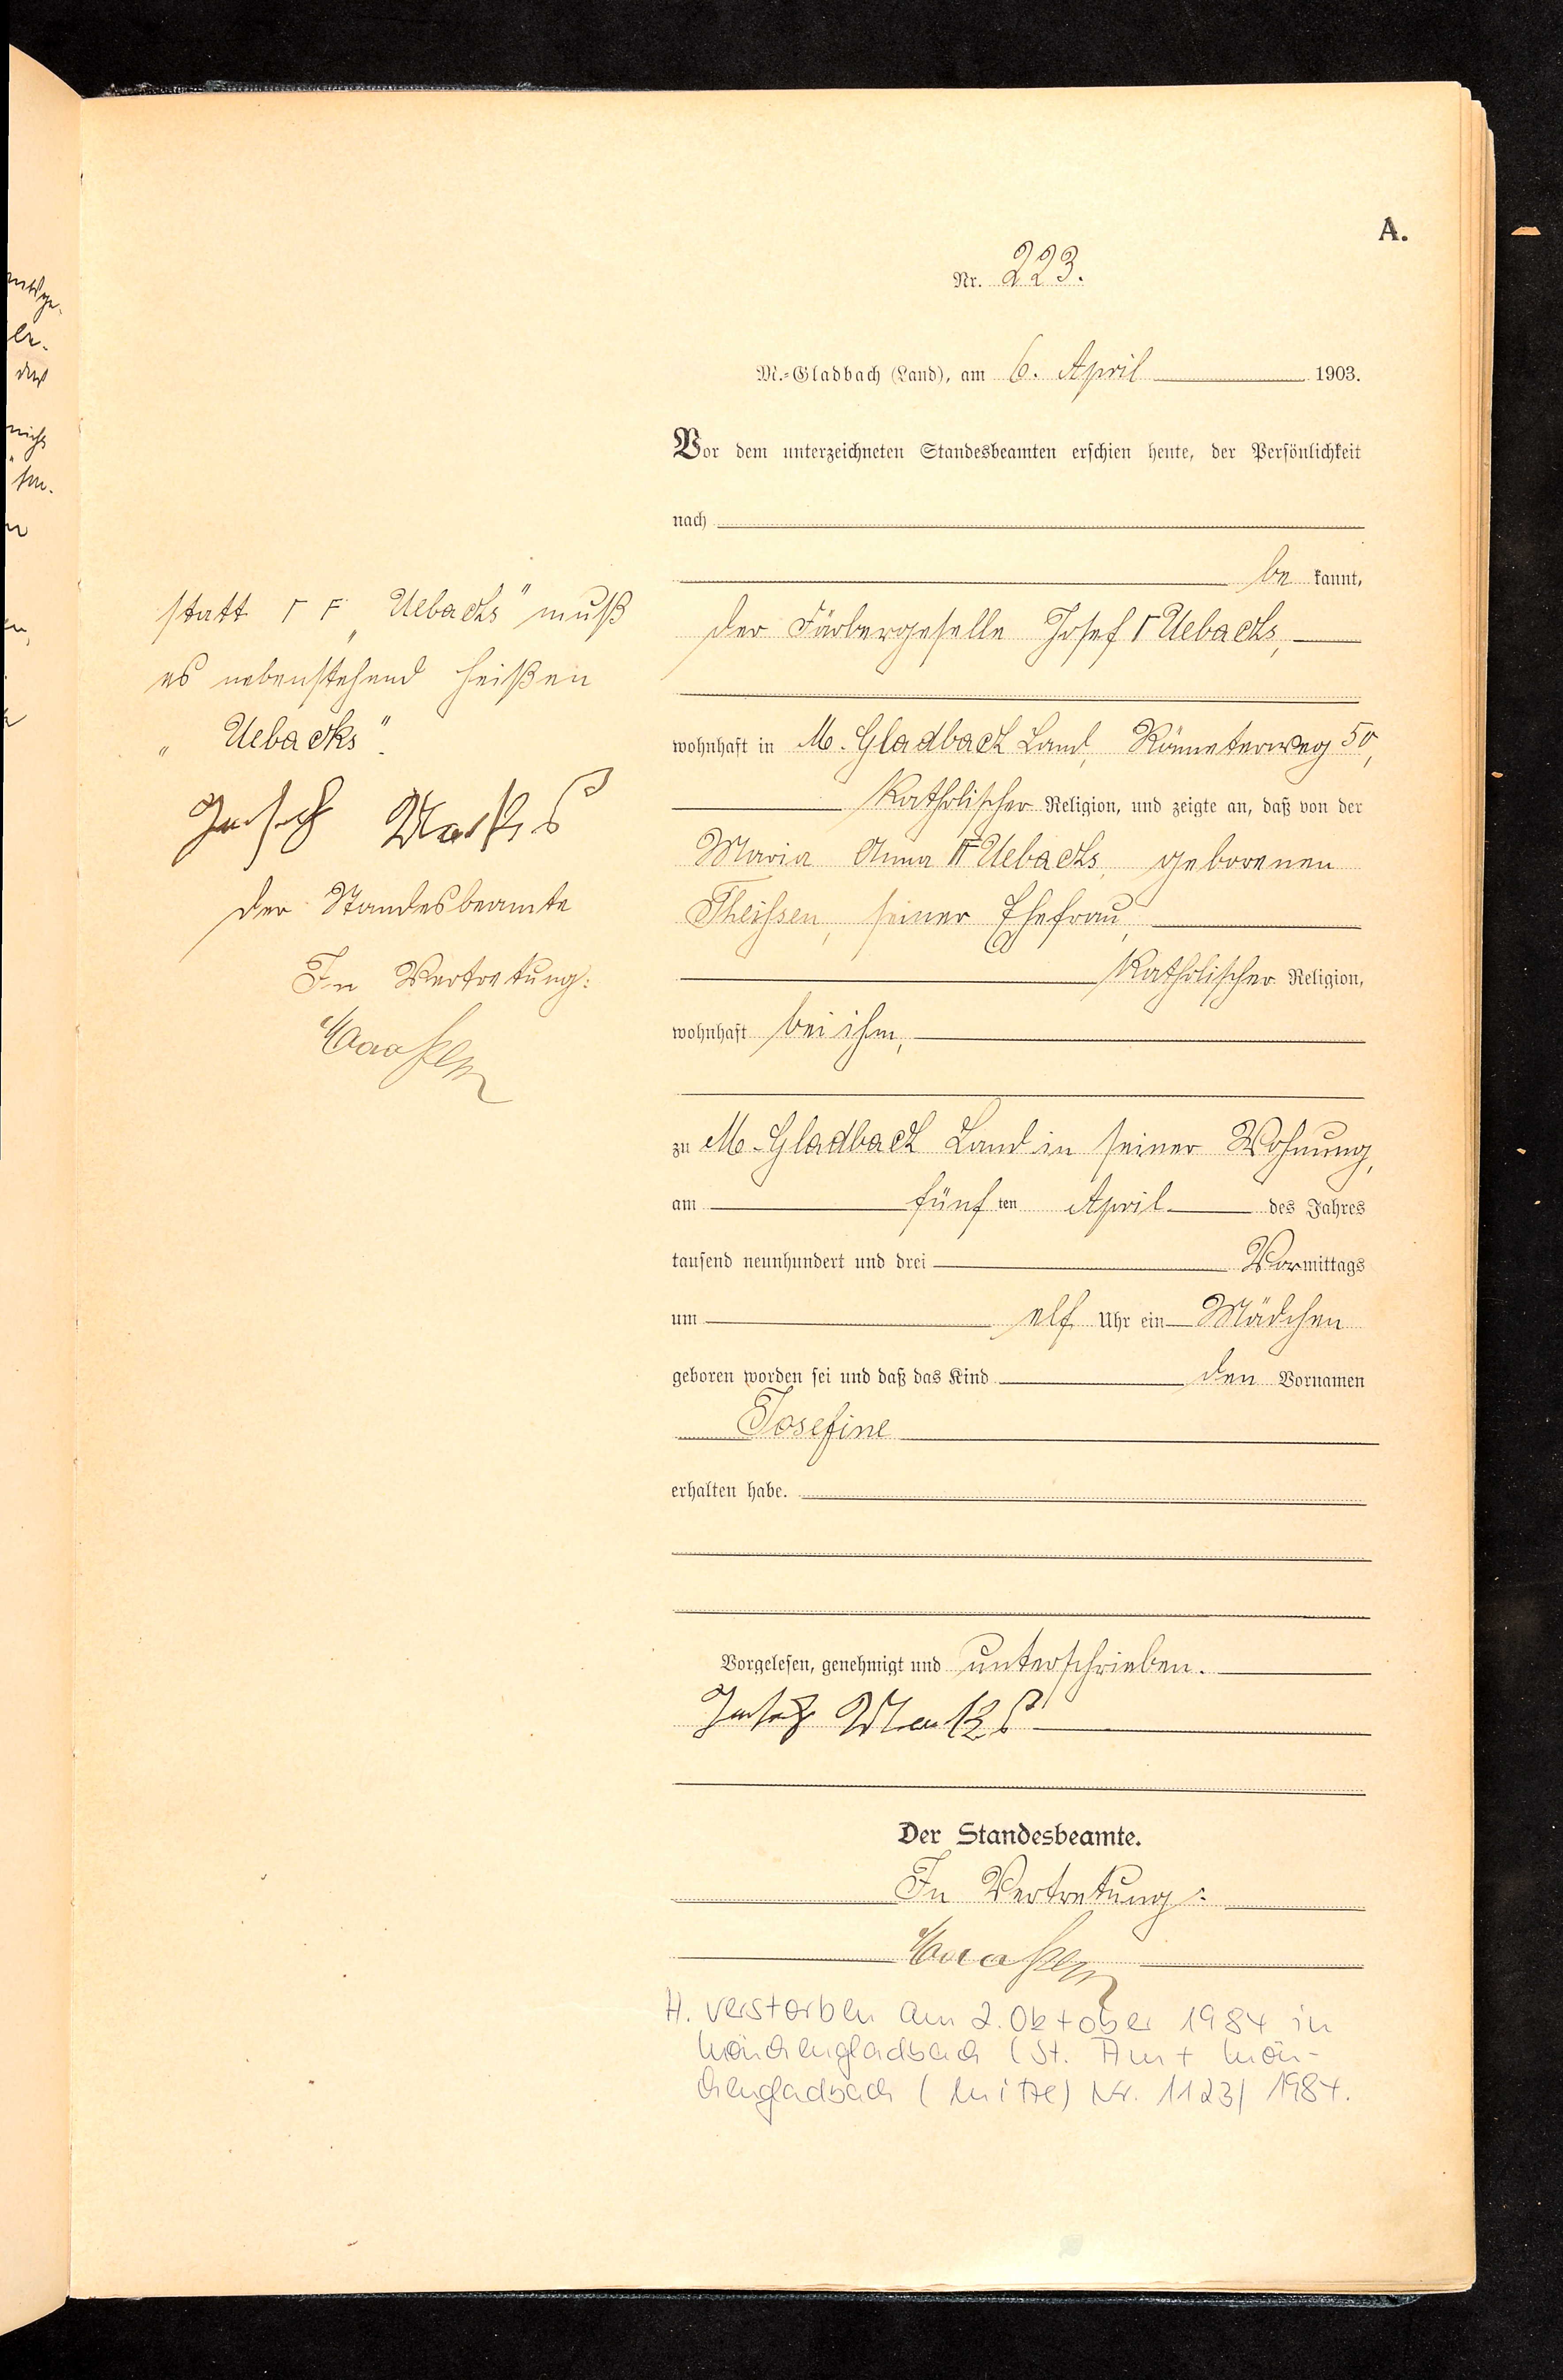 A.
Nr. 223.
M.-Gladbach (Land), am 6. April 1903.
Vor dem unterzeichneten Standesbeamten erschien heute, der Persönlichkeit
nach
be kannt,
der Färbergeselle Josef Γ Uebachs,
wohnhaft in M. Gladbach Land, 50,
Katholischer Religion, und zeigte an, daß von der
Maria Anna Uebachs, geborenen
Theißen, seiner Ehefrau,
Katholischer Religion,
wohnhaft bei ihm,
zu M. Gladbach Land in seiner Wohnung,
am fünf ten April des Jahres
tausend neunhundert und drei Vormittags
um elf Uhr ein Mädchen
geboren worden sei und daß das Kind den Vornamen
Josefine
erhalten habe.
Vorgelesen, genehmigt und unterschrieben.
Der Standesbeamte.
In Vertretung:
H. verstorben am 2. Oktober 1984 in
Mönchengladbach (St. Amt Mön-
chengladbach (Mitte) Nr. 1123/1984.
statt Γ F „Uebachs" muß
es nebenstehend heißen
„Uebacks".
Der Standesbeamte
In Vertretung: